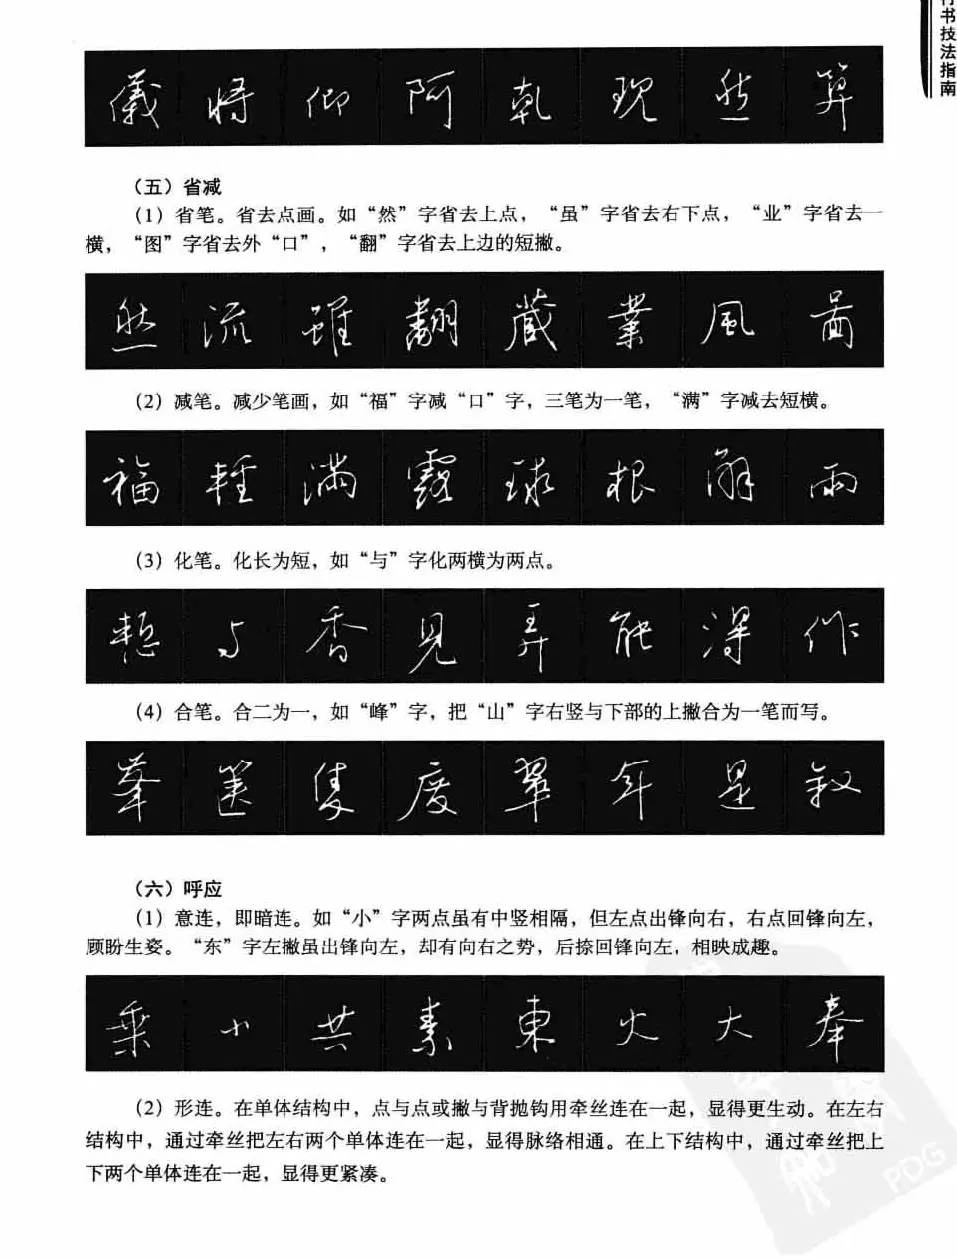 行书技法指南
儀 將 仰 阿 乾 現 然 算
（五）省减
（1）省笔。省去点画。如“然”字省去上点，“虽”字省去右下点，“业”字省去一
横，“图”字省去外“口”，“翻”字省去上边的短撇。
然 流 雖 翻 藏 業 風 圖
（2）减笔。减少笔画，如“福”字减“口”字，三笔为一笔，“满”字减去短横。
福 輕 满 露 球 根 解 雨
（3）化笔。化长为短，如“与”字化两横为两点。
与 香 見 弄 能 得 作
（4）合笔。合二为一，如“峰”字，把“山”字右竖与下部的上撇合为一笔而写。
峯 篋 隻 度 翠 年 是 叙
（六）呼应
（1）意连，即暗连。如“小”字两点虽有中竖相隔，但左点出锋向右，右点回锋向左，
顾盼生姿。“东”字左撇虽出锋向左，却有向右之势，后捺回锋向左，相映成趣。
乘 小 共 素 東 火 大 奉
（2）形连。在单体结构中，点与点或撇与背抛钩用牵丝连在一起，显得更生动。在左右
结构中，通过牵丝把左右两个单体连在一起，显得脉络相通。在上下结构中，通过牵丝把上
下两个单体连在一起，显得更紧凑。
PDG